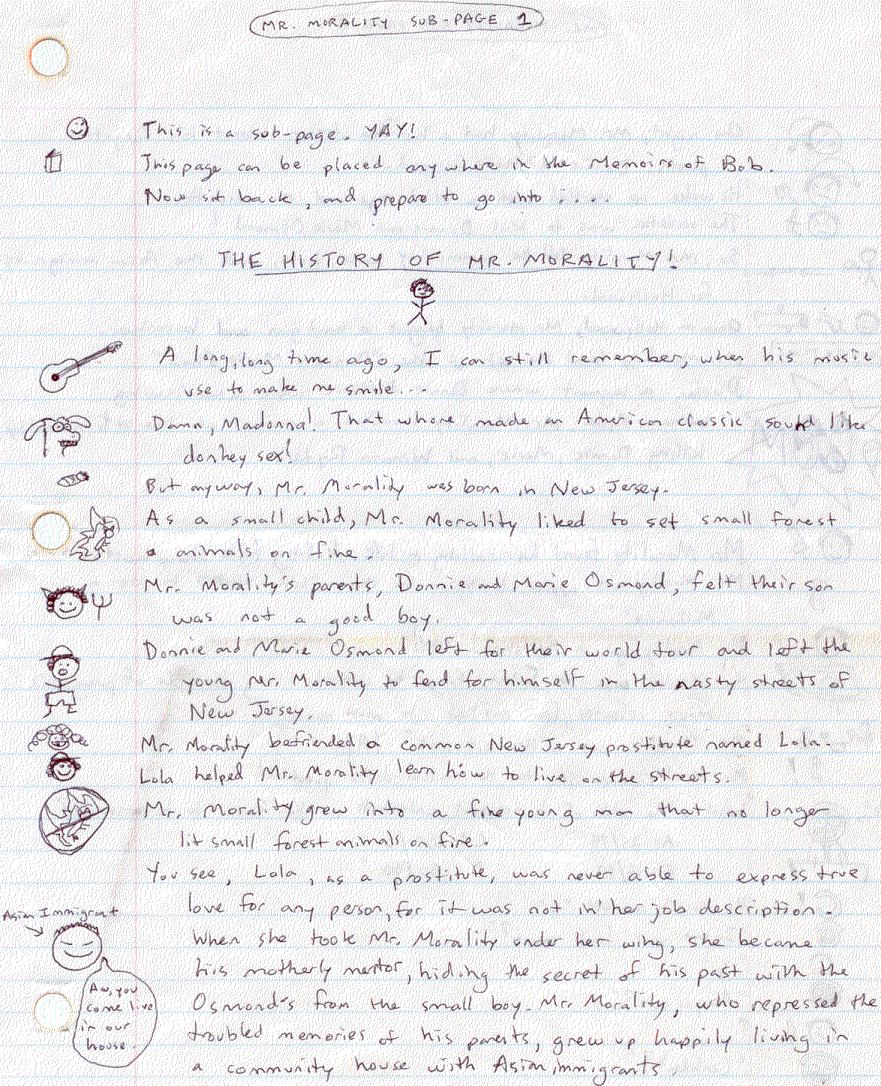 MR. MORALITY SUB-PAGE 1
This is a sub-page. YAY!
This page can be placed anywhere in the Memoirs of Bob.
Now sit back, and prepare to go into ....
THE HISTORY OF MR. MORALITY!
A long, long time ago, I can still remember, when his music
use to make me smile...
Damn, Madonna! That whore made an American classic sound like
donkey sex!
But anyway, Mr. Morality was born in New Jersey.
As a small child, Mr. Morality liked to set small forest
animals on fire.
Mr. Morality's parents, Donnie and Marie Osmond, felt their son
was not a good boy.
Donnie and Marie Osmond left for their world tour and left the
young Mr. Morality to fend for himself in the nasty streets of
New Jersey.
Mr. Morality befriended a common New Jersey prostitute named Lola.
Lola helped Mr. Morality learn how to live on the streets.
Mr. Morality grew into a fine young man that no longer
lit small forest animals on fire.
You see, Lola, as a prostitute, was never able to express true
love for any person, for it was not in her job description.
When she took Mr. Morality under her wing, she became
his motherly mentor, hiding the secret of his past with the
Osmond's from the small boy. Mr. Morality, who repressed the
troubled memories of his parents, grew up happily living in
a community house with Asian immigrants
Asian Immigrant
Aw, you
come live
in our
house.